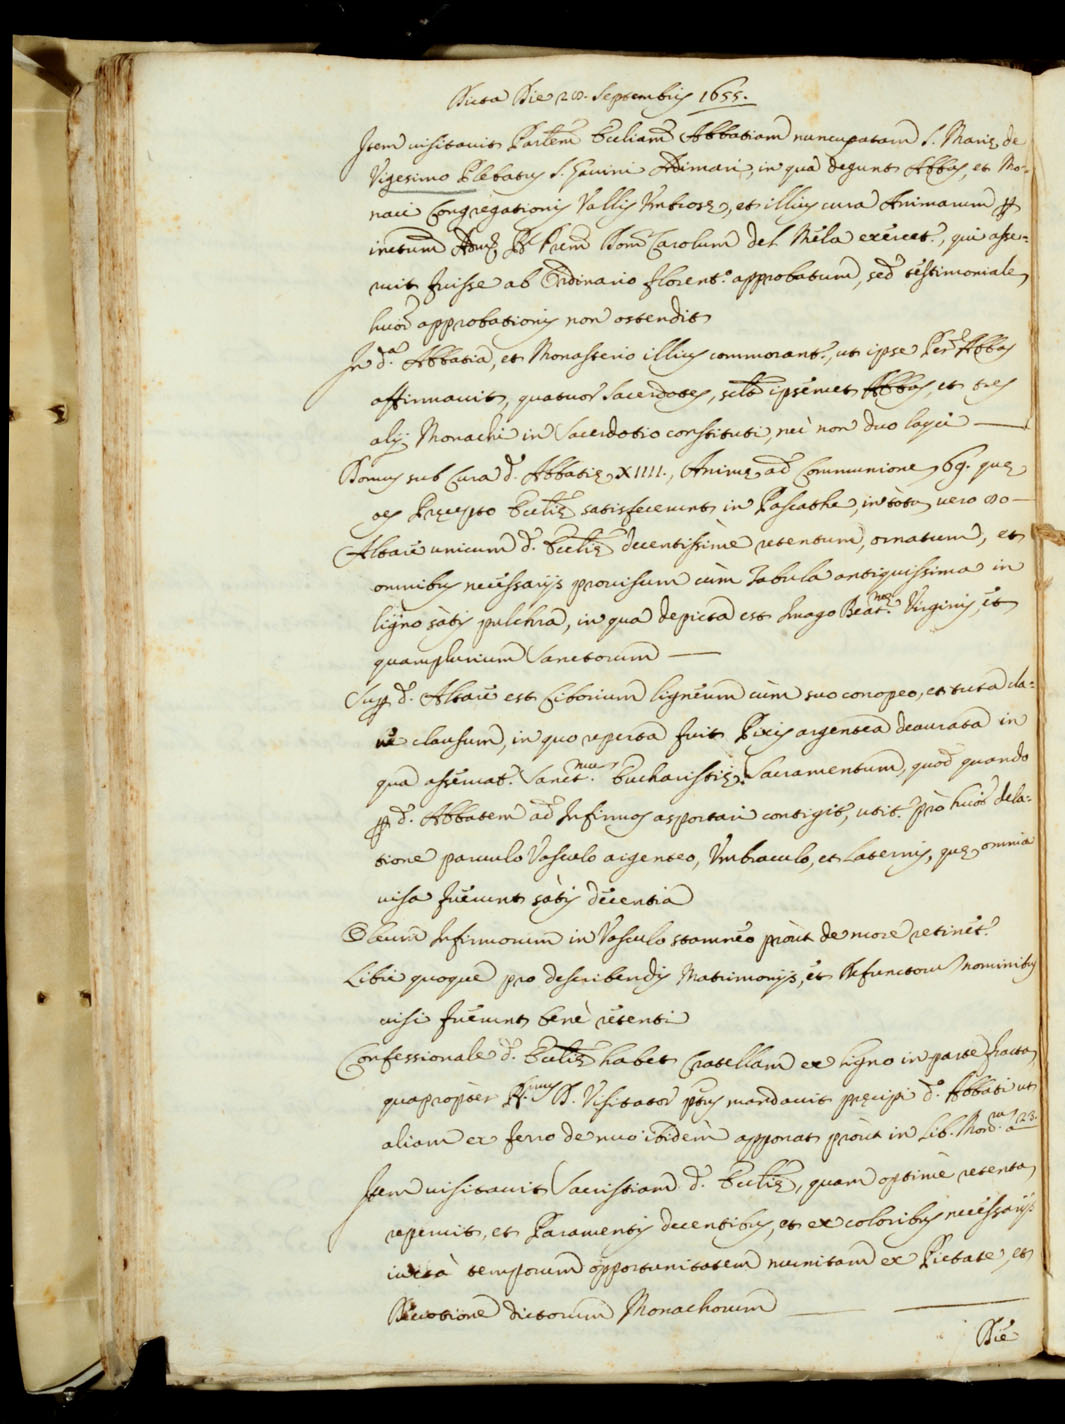 Dicta Die 28. Septembris 1655.
Item visitavit Parlem Eccliam Abbatiam nuncupatam S. Marię de
Vigesimo Plebatus S. Gavini Adimari, in qua degunt Abbas, et Mo-
naci Congregationis Vallis Umbrosę, et illius cura Animarum p
Carolum del Mela exercet., qui asse-
ruit fuisse ab Ordinario Florent.o approbatum, sed testimoniale
huiōi approbationis non ostendit
In d.a Abbatia, et Monasterio illius commorant., ut ipse Abbas
affirmavit, quatuor Sacerdotes, sclt ipsemet Abbas, et tres
alij Monachi in Sacerdotio constituti, nec non duo layci —
Domus sub Cura d. Abbatię XIIII., Animę ad Communione 69. quę
oes Pręcepto Ecclię satisfecerunt in Pascathe, in totu vero 80 —
Altare unicum d. Ecclię decentissime retentum, ornatum, et
omnibus necessarijs provisum cum Tabula antiquissima in
ligno satis pulchra, in qua depicta est Imago Beat.mę Virginis, et
quamplurium Sanctorum —
Sup d. Altare est Ciborium ligneum cum suo conopeo, et tuta cla-
ve clausum, in quo reperta fuit Pixis argentea deaurata in
qua asservat. Sanct.mum Eucharistię Sacramentum, quod quando
p d. Abbatem ad Infirmos asportari contigit, utit. pro huiōi dela-
tione parvulo Vasculo argenteo, Umbraculo, et Laternis, quę omnia
visa fuerunt satis decentia
Oleum Infirmorum in Vasculo stamneo prout de more retinet.
Libri quoque pro describendis Matrimonijs, et Defunctorū Nominibus
visi fuerunt bene retenti
Confessionale d. Ecclię habet Cratellam ex ligno in parte fracta,
quapropter D. Visitator ptus mandavit pręcipi d. Abbati ut
aliam ex ferro de nuo ibidem apponat prout in Lib. Mand. a 23.
Item visitavit Sacristiam d. Ecclię, quam optime retenta
reperuit, et Paramentis decentibus, et ex coloribus necessarijs
iuxta temporum opportunitatem munitam ex Pietate, et
Devotione dictorum Monachorum —
Die